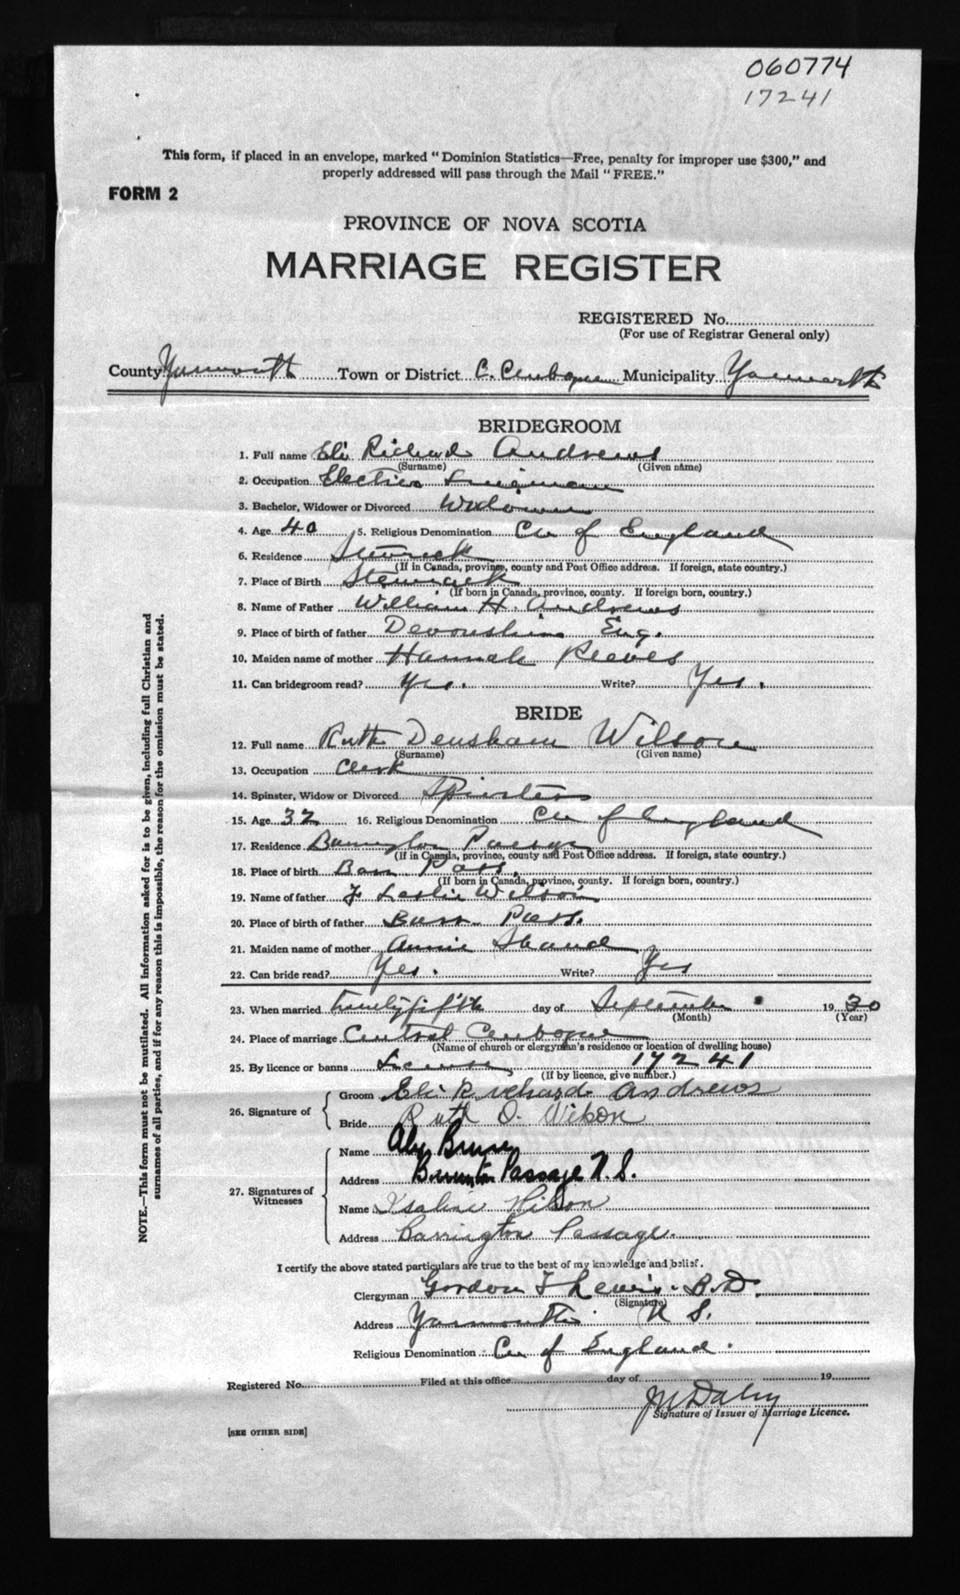 060774
17241
This form, if placed in an envelope, marked "Dominion Statistics—Free, penalty for improper use $300," and
properly addressed will pass through the Mail "FREE."
FORM 2
PROVINCE OF NOVA SCOTIA
MARRIAGE REGISTER
REGISTERED No.
(For use of Registrar General only)
County Yarmouth Town or District C. Municipality Yarmouth
BRIDEGROOM
1. Full name Eli Richard Andrews
(Surname) (Given name)
2. Occupation Electric Lineman
3. Bachelor, Widower or Divorced Widower
4. Age 40 5. Religious Denomination Ch of England
6. Residence
(If in Canada, province, county and Post Office address. If foreign, state country.)
7. Place of Birth
(If born in Canada, province, county. If foreign born, country.)
8. Name of Father William H. Andrews
9. Place of birth of father Devonshire Eng.
10. Maiden name of mother Hannah Reeves
11. Can bridegroom read? Yes. Write? Yes.
BRIDE
12. Full name Ruth Densham Wilson
(Surname) (Given name)
13. Occupation Clerk
14. Spinster, Widow or Divorced Spinster
15. Age 32 16. Religious Denomination Ch of England
17. Residence Barrington Passage
(If in Canada, province, county and Post Office address. If foreign, state country.)
18. Place of birth Barr Pass.
(If born in Canada, province, county. If foreign born, country.)
19. Name of father Leslie Wilson
20. Place of birth of father Barr. Pass.
21. Maiden name of mother Annie Shand
22. Can bride read? Yes. Write? Yes
23. When married twentyfifth day of September 1930
(Month) (Year)
24. Place of marriage Central
(Name of church or clergyman's residence or location of dwelling house)
25. By licence or banns License 17241
(If by licence, give number.)
26. Signature of
Groom Eli Richard Andrews
Bride Ruth D. Wilson
27. Signatures of Witnesses
Name
Address Barrington Passage N.S.
Name Wilson
Address Barrington Passage.
I certify the above stated particulars are true to the best of my knowledge and belief.
Clergyman Gordon T Lewis. B.D.
(Signature)
Address Yarmouth N S.
Religious Denomination Ch of England.
Registered No. Filed at this office day of 19
Signature of Issuer of Marriage Licence.
[SEE OTHER SIDE]
NOTE.—This form must not be mutilated. All information asked for is to be given, including full Christian and
surnames of all parties, and if for any reason this is impossible, the reason for the omission must be stated.